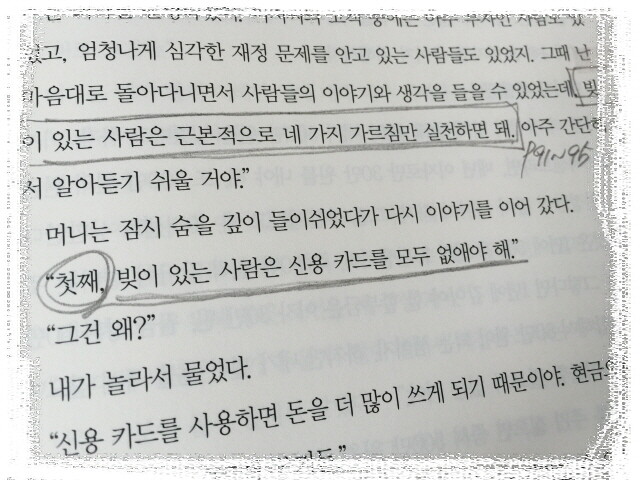 었고, 엄청나게 심각한 재정 문제를 안고 있는 사람들도 있었지. 그때 난
마음대로 돌아다니면서 사람들의 이야기와 생각을 들을 수 있었는데, 빚
이 있는 사람은 근본적으로 네 가지 가르침만 실천하면 돼. 아주 간단해
P91~95
서 알아듣기 쉬울 거야.”
머니는 잠시 숨을 깊이 들이쉬었다가 다시 이야기를 이어 갔다.
“첫째, 빚이 있는 사람은 신용 카드를 모두 없애야 해.”
“그건 왜?”
내가 놀라서 물었다.
“신용 카드를 사용하면 돈을 더 많이 쓰게 되기 때문이야. 현금